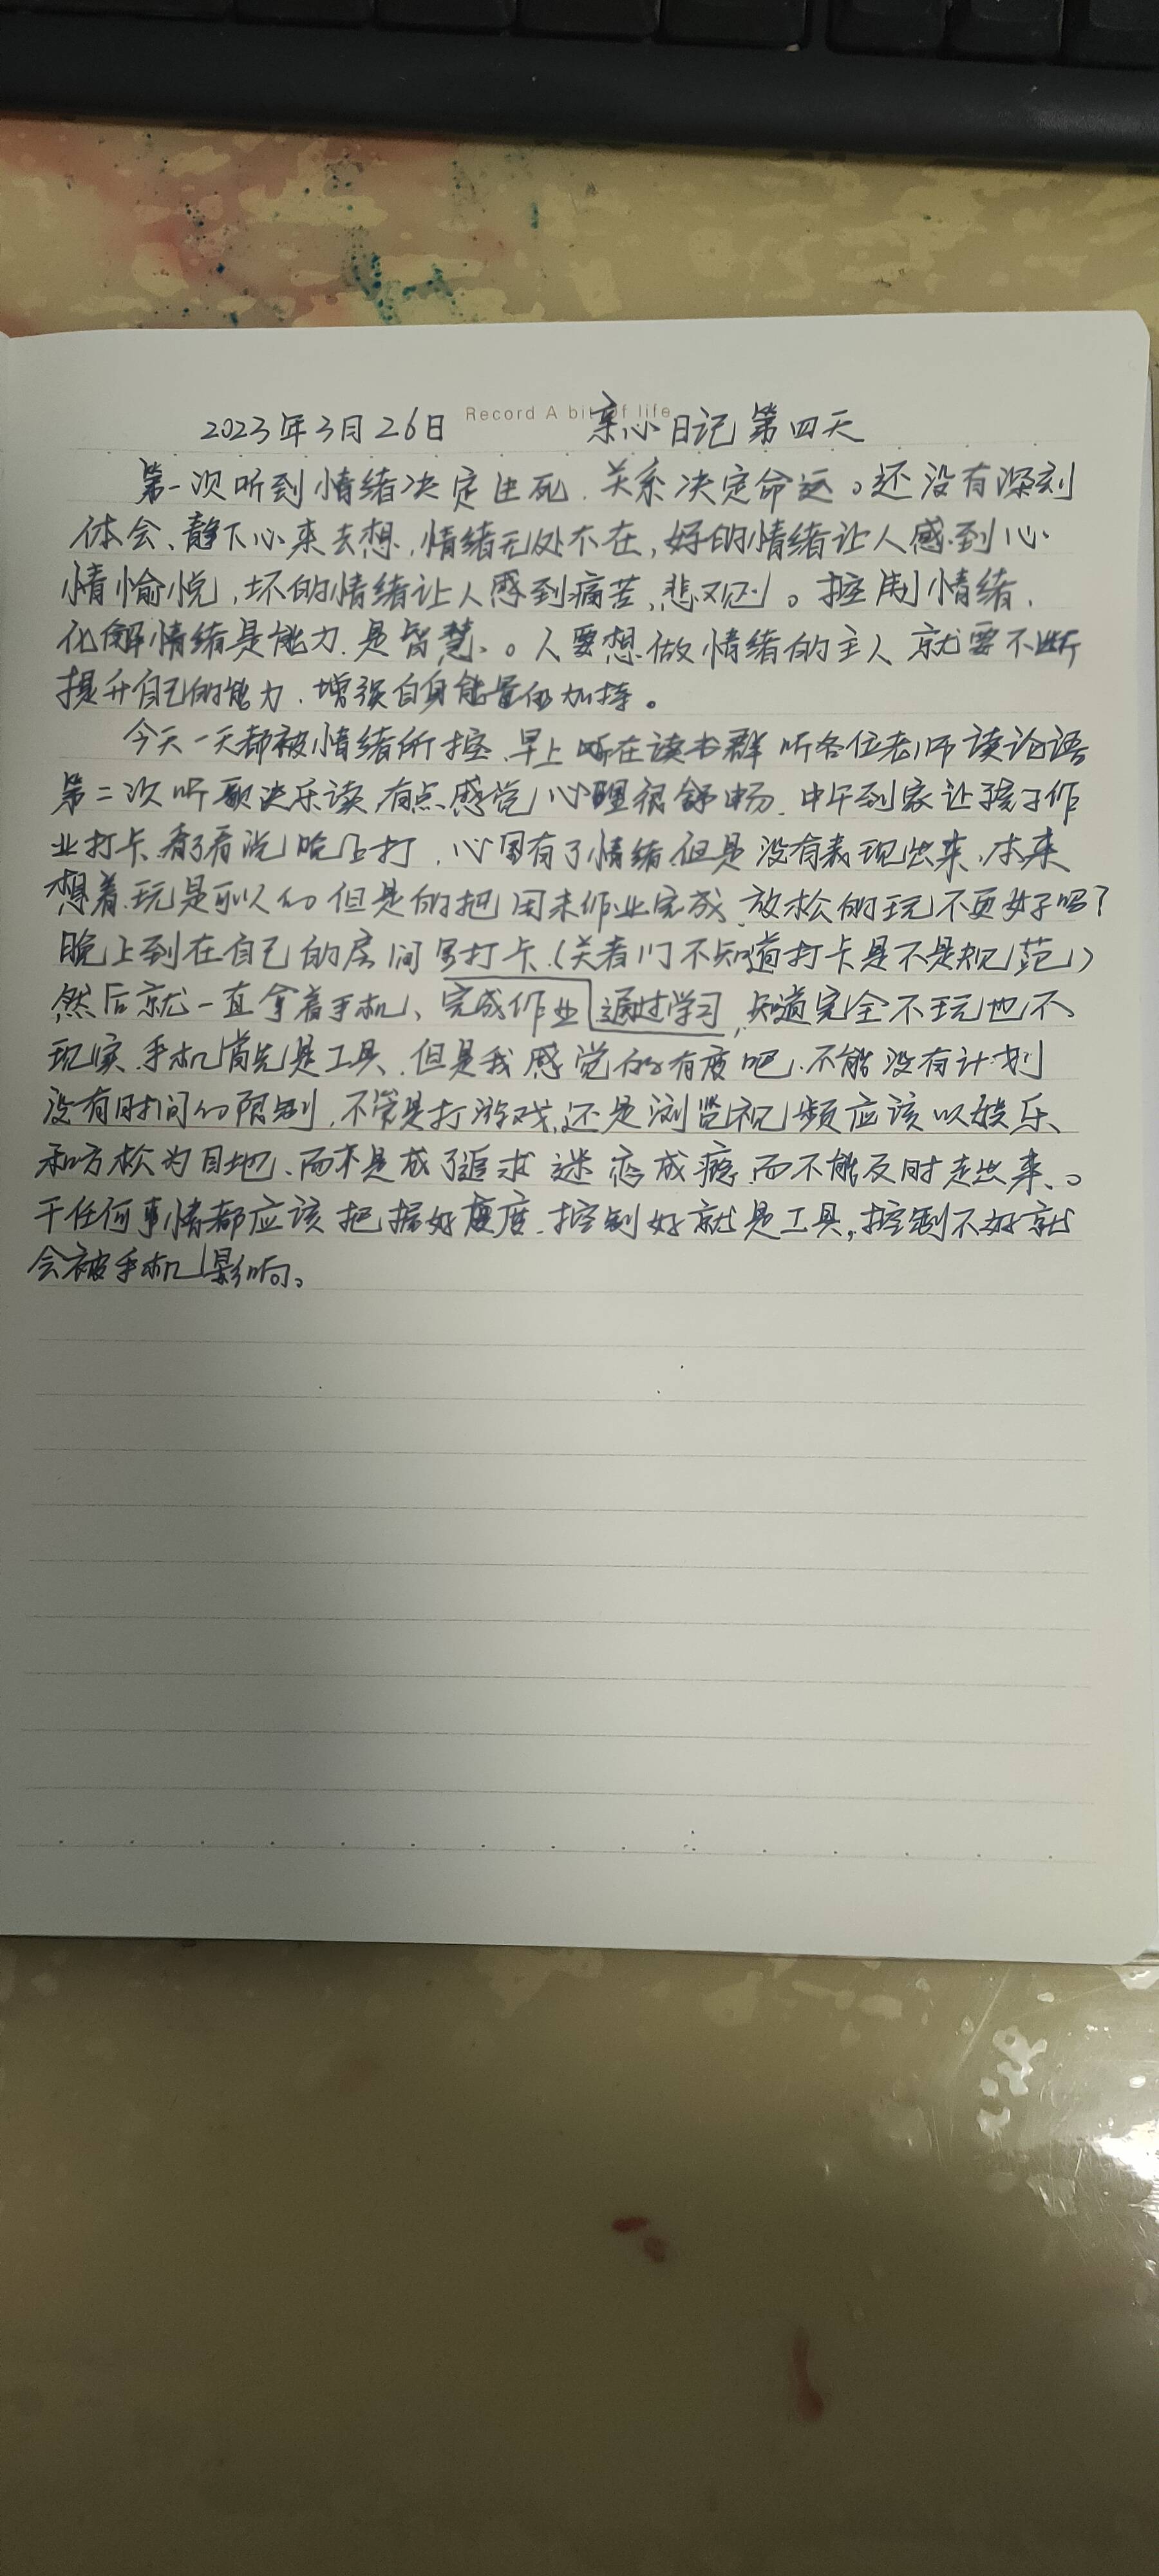 Record A bit of life
2023年3月26日 亲心日记 第四天
第一次听到情绪决定生死.关系决定命运。还没有深刻
体会、静下心来去想,情绪无处不在,好的情绪让人感到心
情愉悦,坏的情绪让人感到痛苦、悲观。控制情绪.
化解情绪是能力.是智慧。人要想做情绪的主人就要不断
提升自己的能力.增强自身能量的加持。
今天一天都被情绪所控.早上 在读书群 听各位老师读论语
第二次听 乐读 有点感觉 心理很舒畅.中午到家让孩子作
业打卡 看了看说 打,心里有了情绪但是没有表现出来、本来
想着.玩是可以的但是的把周末作业完成 放松的玩不更好吗?
晚上到在自己的房间写打卡(关着门不知道打卡是不是规范)
然后就一直拿着手机、完成作业 通过学习,知道完全不玩也不
现实.手机首先是工具.但是我感觉的有度吧.不能没有计划
没有时间的限制.不管是打游戏,还是浏览视频应该以娱乐
和方松为目地、而不是成了追求 迷恋成瘾 而不能及时走出来。
干任何事情都应该把握好 度.控制好就是工具,控制不好就
会被手机 影响。